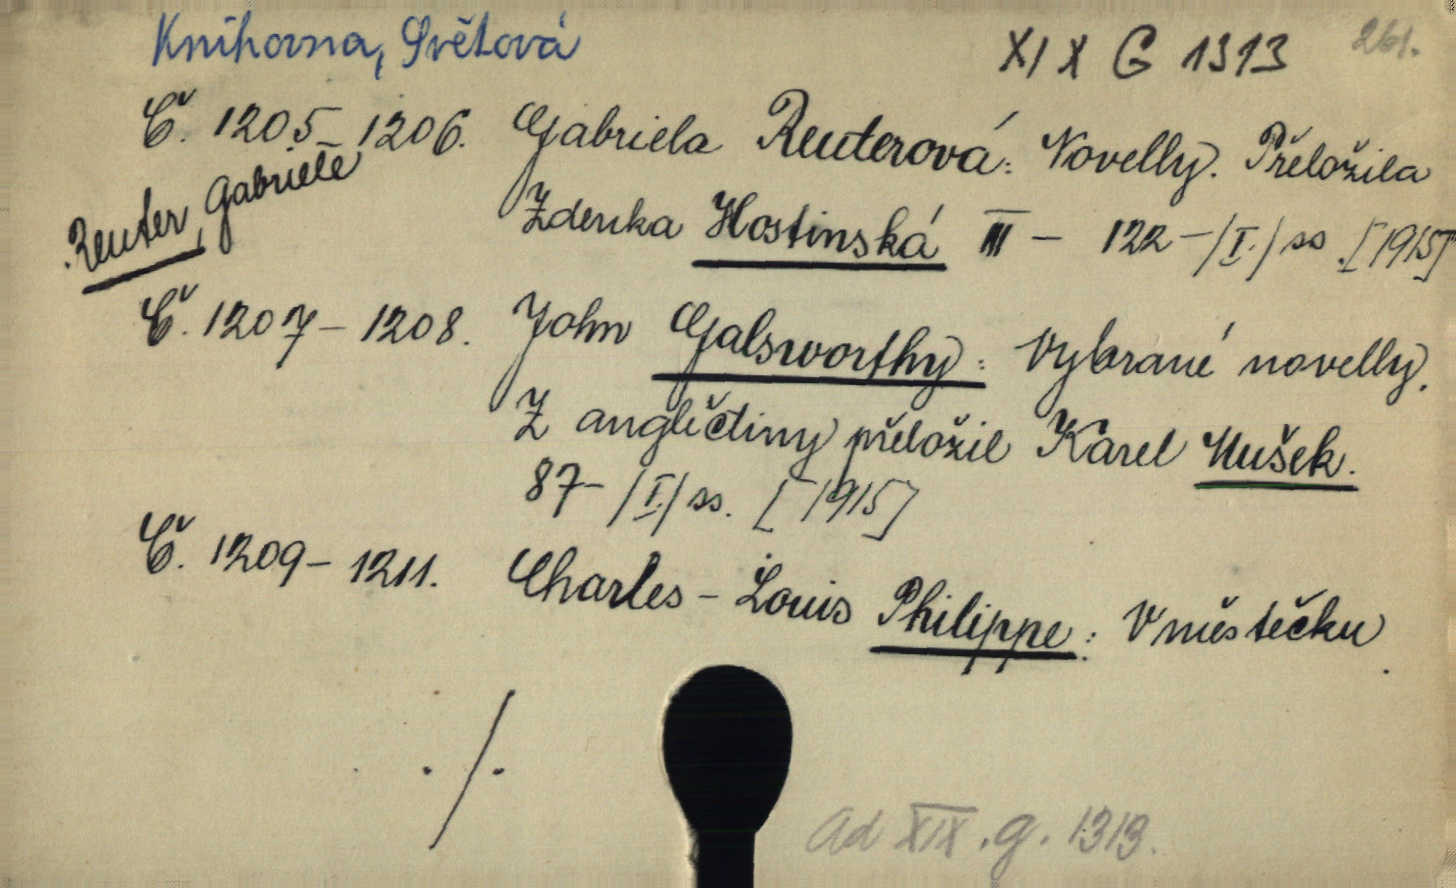 Knihovna, Světová
XIX G 1313
261.
Č. 1205-1206. Gabriela Reuterová: Novelly. Přeložila
Reuter, Gabriele
Zdenka Hostinská III - 122 - /I./ ss. [1915]
Č. 1207 - 1208. John Galsworthy: Vybrané novelly.
Z angličtiny přeložil Karel Mušek.
87 - /I./ ss. [1915]
Č. 1209 - 1211. Charles - Louis Philippe: V městečku.
./.
ad XIX.g.1313.